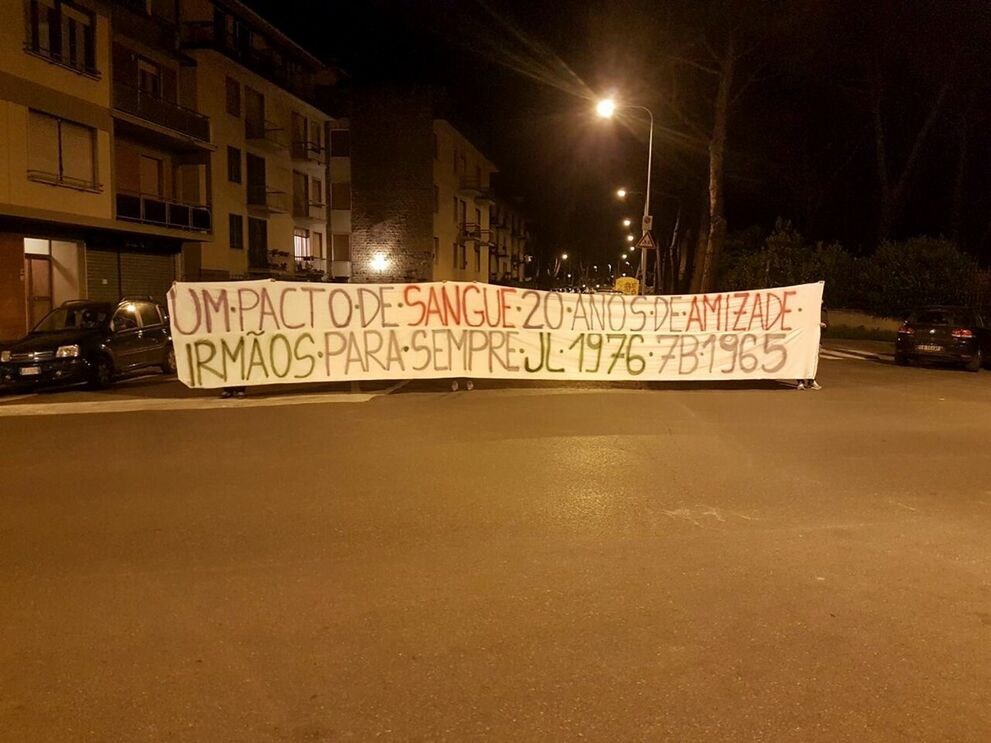 UM·PACTO·DE·SANGUE·20·ANOS·DE·AMIZADE·
IRMÃOS·PARA·SEMPRE·JL·1976·7B·1965